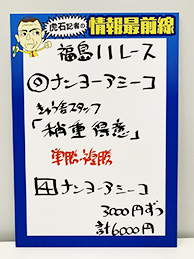 虎石記者の
情報最前線
福島11レース
◎ナンヨーアミーコ
「稍重得意」
単勝・複勝
4ナンヨーアミーコ
3000円ずつ
計6000円